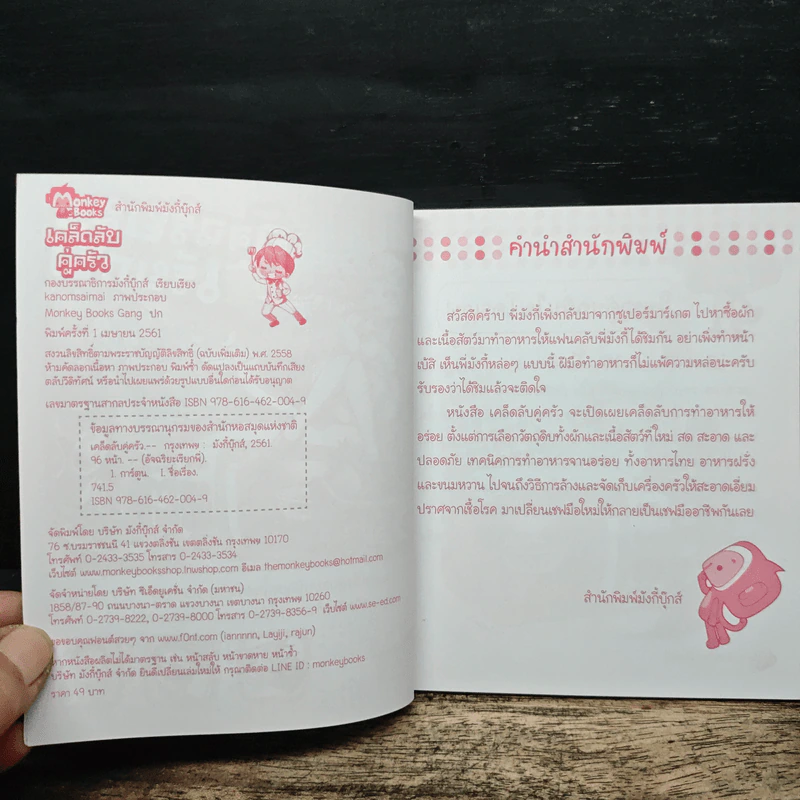 Monkey Books สำนักพิมพ์มังกี้บุ๊กส์
เคล็ดลับ
คู่ครัว
กองบรรณาธิการมังกี้บุ๊กส์ เรียบเรียง
kanomsaimai ภาพประกอบ
Monkey Books Gang ปก
พิมพ์ครั้งที่ 1 เมษายน 2561
สงวนลิขสิทธิ์ตามพระราชบัญญัติลิขสิทธิ์ (ฉบับเพิ่มเติม) พ.ศ. 2558
ห้ามคัดลอกเนื้อหา ภาพประกอบ พิมพ์ซ้ำ ดัดแปลงเป็นแถบบันทึกเสียง
ตลับวิดีทัศน์ หรือนำไปเผยแพร่ด้วยรูปแบบอื่นใดก่อนได้รับอนุญาต
เลขมาตรฐานสากลประจำหนังสือ ISBN 978-616-462-004-9
ข้อมูลทางบรรณานุกรมของสำนักหอสมุดแห่งชาติ
เคล็ดลับคู่ครัว.-- กรุงเทพฯ : มังกี้บุ๊กส์, 2561.
96 หน้า. -- (อัจฉริยะเรียกพี่).
1. การ์ตูน. I. ชื่อเรื่อง.
741.5
ISBN 978-616-462-004-9
จัดพิมพ์โดย บริษัท มังกี้บุ๊กส์ จำกัด
76 ซ.บรมราชชนนี 41 แขวงตลิ่งชัน เขตตลิ่งชัน กรุงเทพฯ 10170
โทรศัพท์ 0-2433-3535 โทรสาร 0-2433-3534
เว็บไซต์ www.monkeybooksshop.lnwshop.com อีเมล themonkeybooks@hotmail.com
จัดจำหน่ายโดย บริษัท ซีเอ็ดยูเคชั่น จำกัด (มหาชน)
1858/87-90 ถนนบางนา-ตราด แขวงบางนา เขตบางนา กรุงเทพฯ 10260
โทรศัพท์ 0-2739-8222, 0-2739-8000 โทรสาร 0-2739-8356-9 เว็บไซต์ www.se-ed.com
ขอขอบคุณฟอนต์สวยๆ จาก www.f0nt.com (iannnnn, Layiji, rajun)
หากหนังสือผลิตไม่ได้มาตรฐาน เช่น หน้าสลับ หน้าขาดหาย หน้าซ้ำ
บริษัท มังกี้บุ๊กส์ จำกัด ยินดีเปลี่ยนเล่มใหม่ให้ กรุณาติดต่อ LINE ID : monkeybooks
ราคา 49 บาท
คำนำสำนักพิมพ์
สวัสดีคร้าบ พี่มังกี้เพิ่งกลับมาจากซูเปอร์มาร์เกต ไปหาซื้อผัก
และเนื้อสัตว์มาทำอาหารให้แฟนคลับพี่มังกี้ได้ชิมกัน อย่าเพิ่งทำหน้า
เบ้สิ เห็นพี่มังกี้หล่อๆ แบบนี้ ฝีมือทำอาหารก็ไม่แพ้ความหล่อนะครับ
รับรองว่าได้ชิมแล้วจะติดใจ
หนังสือ เคล็ดลับคู่ครัว จะเปิดเผยเคล็ดลับการทำอาหารให้
อร่อย ตั้งแต่การเลือกวัตถุดิบทั้งผักและเนื้อสัตว์ที่ใหม่ สด สะอาด และ
ปลอดภัย เทคนิคการทำอาหารจานอร่อย ทั้งอาหารไทย อาหารฝรั่ง
และขนมหวาน ไปจนถึงวิธีการล้างและจัดเก็บเครื่องครัวให้สะอาดเอี่ยม
ปราศจากเชื้อโรค มาเปลี่ยนเชฟมือใหม่ให้กลายเป็นเชฟมืออาชีพกันเลย
สำนักพิมพ์มังกี้บุ๊กส์